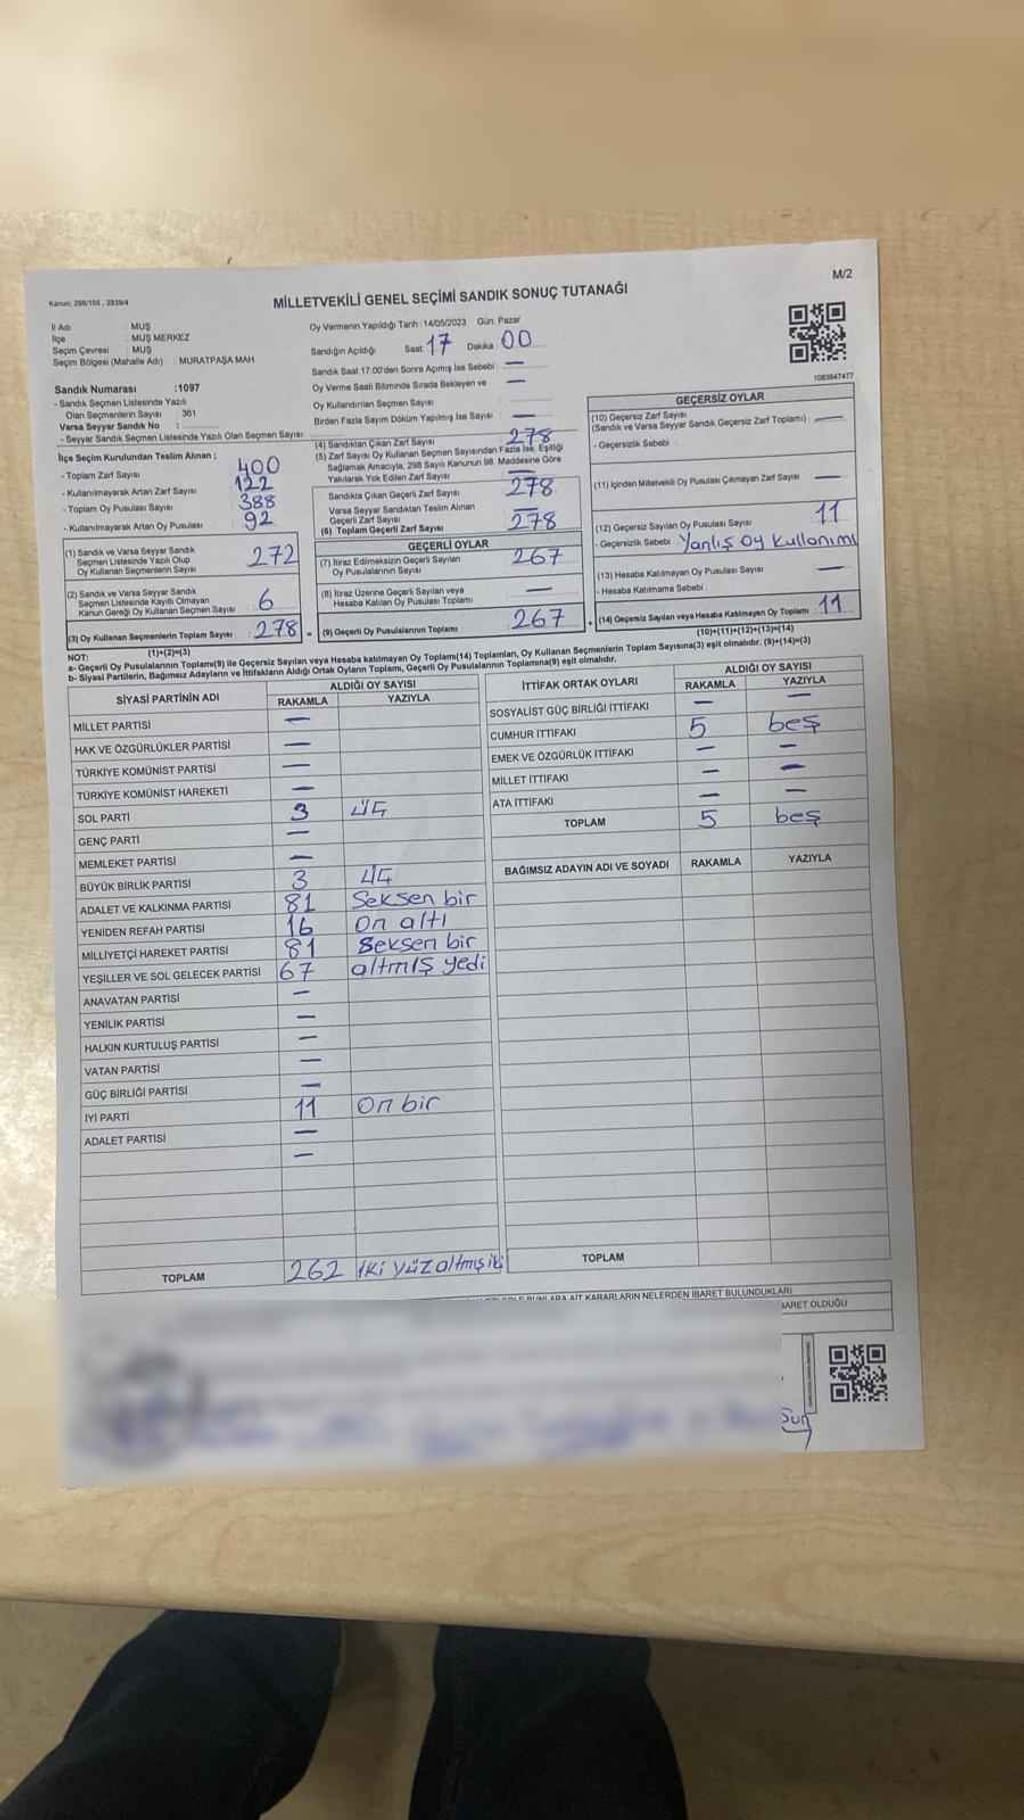 Kanun: 298/105 , 2839/4
M/2
MİLLETVEKİLİ GENEL SEÇİMİ SANDIK SONUÇ TUTANAĞI
İl Adı : MUŞ
İlçe : MUŞ MERKEZ
Seçim Çevresi : MUŞ
Seçim Bölgesi (Mahalle Adı) : MURATPAŞA MAH
Sandık Numarası :1097
- Sandık Seçmen Listesinde Yazılı
Olan Seçmenlerin Sayısı : 361
Varsa Seyyar Sandık No :
- Seyyar Sandık Seçmen Listesinde Yazılı Olan Seçmen Sayısı
İlçe Seçim Kurulundan Teslim Alınan :
- Toplam Zarf Sayısı 400
- Kullanılmayarak Artan Zarf Sayısı 122
- Toplam Oy Pusulası Sayısı 388
- Kullanılmayarak Artan Oy Pusulası 92
(1) Sandık ve Varsa Seyyar Sandık
Seçmen Listesinde Yazılı Olup
Oy Kullanan Seçmenlerin Sayısı 272
(2) Sandık ve Varsa Seyyar Sandık
Seçmen Listesinde Kayıtlı Olmayan
Kanun Gereği Oy Kullanan Seçmen Sayısı 6
(3) Oy Kullanan Seçmenlerin Toplam Sayısı 278
(1)+(2)=(3)
Oy Vermenin Yapıldığı Tarih : 14/05/2023 Gün: Pazar
Sandığın Açıldığı Saat: 17 Dakika: 00
Sandık Saat 17:00'den Sonra Açılmış İse Sebebi : —
Oy Verme Saati Bitiminde Sırada Bekleyen ve
Oy Kullandırılan Seçmen Sayısı : —
Birden Fazla Sayım Döküm Yapılmış İse Sayısı : —
(4) Sandıktan Çıkan Zarf Sayısı 278
(5) Zarf Sayısı Oy Kullanan Seçmen Sayısından Fazla İse, Eşitliği
Sağlamak Amacıyla, 298 Sayılı Kanunun 98. Maddesine Göre
Yakılarak Yok Edilen Zarf Sayısı —
Sandıkta Çıkan Geçerli Zarf Sayısı 278
Varsa Seyyar Sandıktan Teslim Alınan
Geçerli Zarf Sayısı —
(6) Toplam Geçerli Zarf Sayısı 278
GEÇERLİ OYLAR
(7) İtiraz Edilmeksizin Geçerli Sayılan
Oy Pusulalarının Sayısı 267
(8) İtiraz Üzerine Geçerli Sayılan veya
Hesaba Katılan Oy Pusulası Toplamı —
(9) Geçerli Oy Pusulalarının Toplamı 267
1083847477
GEÇERSİZ OYLAR
(10) Geçersiz Zarf Sayısı
(Sandık ve Varsa Seyyar Sandık Geçersiz Zarf Toplamı) —
- Geçersizlik Sebebi :
(11) İçinden Milletvekili Oy Pusulası Çıkmayan Zarf Sayısı —
(12) Geçersiz Sayılan Oy Pusulası Sayısı 11
- Geçersizlik Sebebi : Yanlış oy kullanımı
(13) Hesaba Katılmayan Oy Pusulası Sayısı —
- Hesaba Katılmama Sebebi :
(14) Geçersiz Sayılan veya Hesaba Katılmayan Oy Toplamı 11
(10)+(11)+(12)+(13)=(14)
NOT:
a- Geçerli Oy Pusulalarının Toplamı(9) ile Geçersiz Sayılan veya Hesaba katılmayan Oy Toplamı(14) Toplamları, Oy Kullanan Seçmenlerin Toplam Sayısına(3) eşit olmalıdır. (9)+(14)=(3)
b- Siyasi Partilerin, Bağımsız Adayların ve İttifakların Aldığı Ortak Oyların Toplamı, Geçerli Oy Pusulalarının Toplamına(9) eşit olmalıdır.
SİYASİ PARTİNİN ADI ALDIĞI OY SAYISI
RAKAMLA YAZIYLA
MİLLET PARTİSİ —
HAK VE ÖZGÜRLÜKLER PARTİSİ —
TÜRKİYE KOMÜNİST PARTİSİ —
TÜRKİYE KOMÜNİST HAREKETİ —
SOL PARTİ 3 üç
GENÇ PARTİ —
MEMLEKET PARTİSİ —
BÜYÜK BİRLİK PARTİSİ 3 üç
ADALET VE KALKINMA PARTİSİ 81 Seksen bir
YENİDEN REFAH PARTİSİ 16 On altı
MİLLİYETÇİ HAREKET PARTİSİ 81 Seksen bir
YEŞİLLER VE SOL GELECEK PARTİSİ 67 altmış yedi
ANAVATAN PARTİSİ —
YENİLİK PARTİSİ —
HALKIN KURTULUŞ PARTİSİ —
VATAN PARTİSİ —
GÜÇ BİRLİĞİ PARTİSİ —
İYİ PARTİ 11 On bir
ADALET PARTİSİ —
—
TOPLAM 262 iki yüz altmış iki
İTTİFAK ORTAK OYLARI ALDIĞI OY SAYISI
RAKAMLA YAZIYLA
SOSYALİST GÜÇ BİRLİĞİ İTTİFAKI — —
CUMHUR İTTİFAKI 5 beş
EMEK VE ÖZGÜRLÜK İTTİFAKI — —
MİLLET İTTİFAKI — —
ATA İTTİFAKI — —
TOPLAM 5 beş
BAĞIMSIZ ADAYIN ADI VE SOYADI RAKAMLA YAZIYLA
TOPLAM
BUNLARA AİT KARARLARIN NELERDEN İBARET BULUNDUKLARI
İBARET OLDUĞU